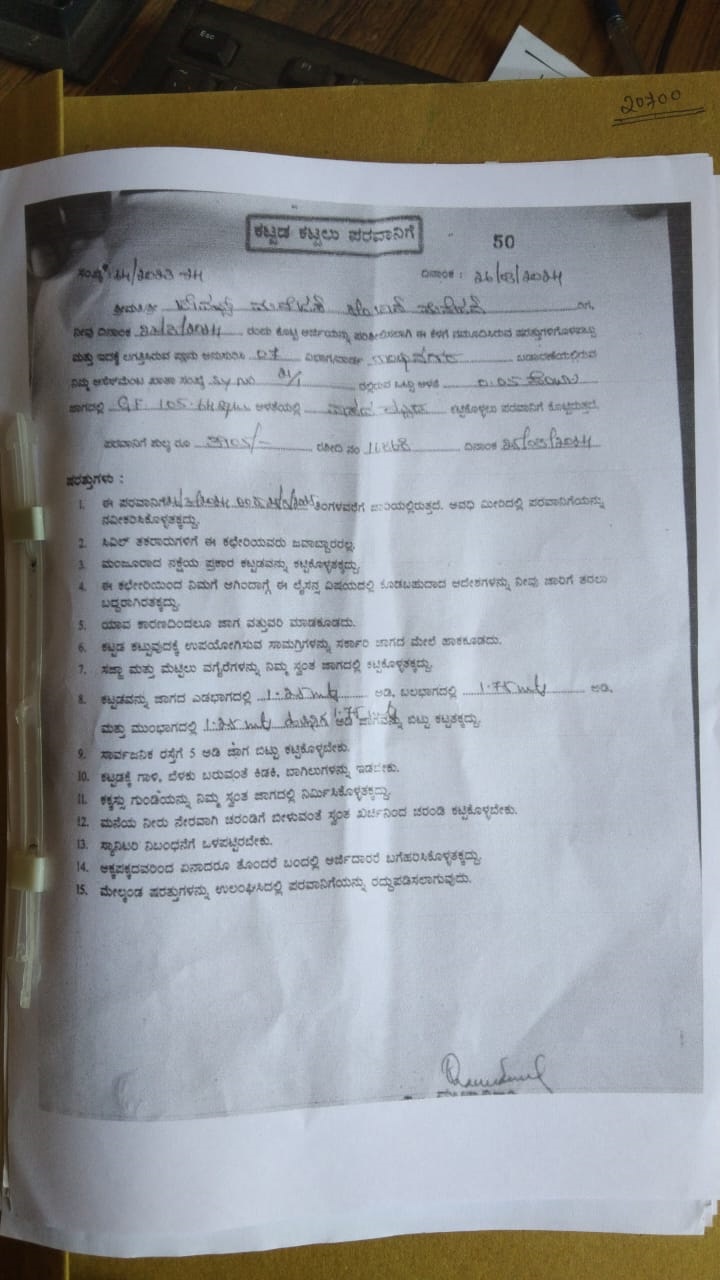 Esc
F1
20700
ಕಟ್ಟಡ ಕಟ್ಟಲು ಪರವಾನಿಗೆ
50
ಸಂಖ್ಯೆ: 2023-24 ದಿನಾಂಕ :
ಶ್ರೀಮತಿ/ಶ್ರೀ ಗೆ,
ನೀವು ದಿನಾಂಕ ರಂದು ಕೊಟ್ಟ ಅರ್ಜಿಯನ್ನು ಪರಿಶೀಲಿಸಲಾಗಿ ಈ ಕೆಳಗೆ ನಮೂದಿಸಿರುವ ಷರತ್ತುಗಳಿಗೊಳಪಟ್ಟು
ಮತ್ತು ಇದಕ್ಕೆ ಲಗತ್ತಿಸಿರುವ ಪ್ಲಾನು ಅನುಸರಿಸಿ 07 ವಿಭಾಗ/ವಾರ್ಡು ಬಡಾವಣೆಯಲ್ಲಿರುವ
ನಿಮ್ಮ ಅಸೆಸ್‌ಮೆಂಟು ಖಾತಾ ಸಂಖ್ಯೆ Sy.No ರಲ್ಲಿರುವ ಒಟ್ಟು ಅಳತೆ 0.05
ಜಾಗದಲ್ಲಿ GF. 105.64 ಅಳತೆಯಲ್ಲಿ ವಾಸದ ಕಟ್ಟಿಕೊಳ್ಳಲು ಪರವಾನಿಗೆ ಕೊಟ್ಟಿರುತ್ತದೆ.
ಪರವಾನಿಗೆ ಶುಲ್ಕ ರೂ ರಶೀದಿ ನಂ 11468 ದಿನಾಂಕ
ಷರತ್ತುಗಳು :
1. ಈ ಪರವಾನಿಗೆ ತಿಂಗಳವರೆಗೆ ಜಾರಿಯಲ್ಲಿರುತ್ತದೆ. ಅವಧಿ ಮೀರಿದಲ್ಲಿ ಪರವಾನಿಗೆಯನ್ನು
ನವೀಕರಿಸಿಕೊಳ್ಳತಕ್ಕದ್ದು.
2. ಸಿವಿಲ್ ತಕರಾರುಗಳಿಗೆ ಈ ಕಛೇರಿಯವರು ಜವಾಬ್ದಾರರಲ್ಲ.
3. ಮಂಜೂರಾದ ನಕ್ಷೆಯ ಪ್ರಕಾರ ಕಟ್ಟಡವನ್ನು ಕಟ್ಟಿಕೊಳ್ಳತಕ್ಕದ್ದು.
4. ಈ ಕಛೇರಿಯಿಂದ ನಿಮಗೆ ಆಗಿಂದಾಗ್ಗೆ ಈ ಲೈಸನ್ಸ ವಿಷಯದಲ್ಲಿ ಕೊಡಬಹುದಾದ ಆದೇಶಗಳನ್ನು ನೀವು ಜಾರಿಗೆ ತರಲು
ಬದ್ಧರಾಗಿರತಕ್ಕದ್ದು.
5. ಯಾವ ಕಾರಣದಿಂದಲೂ ಜಾಗ ವತ್ತುವರಿ ಮಾಡಕೂಡದು.
6. ಕಟ್ಟಡ ಕಟ್ಟುವುದಕ್ಕೆ ಉಪಯೋಗಿಸುವ ಸಾಮಗ್ರಿಗಳನ್ನು ಸರ್ಕಾರಿ ಜಾಗದ ಮೇಲೆ ಹಾಕಕೂಡದು.
7. ಸಜ್ಜಾ ಮತ್ತು ಮೆಟ್ಟಿಲು ವಗೈರೆಗಳನ್ನು ನಿಮ್ಮ ಸ್ವಂತ ಜಾಗದಲ್ಲಿ ಕಟ್ಟಿಕೊಳ್ಳತಕ್ಕದ್ದು.
8. ಕಟ್ಟಡವನ್ನು ಜಾಗದ ಎಡಭಾಗದಲ್ಲಿ ಅಡಿ, ಬಲಭಾಗದಲ್ಲಿ 1.75 ಅಡಿ,
ಮತ್ತು ಮುಂಭಾಗದಲ್ಲಿ ಅಡಿ ಜಾಗವನ್ನು ಬಿಟ್ಟು ಕಟ್ಟತಕ್ಕದ್ದು.
9. ಸಾರ್ವಜನಿಕ ರಸ್ತೆಗೆ 5 ಅಡಿ ಜಾಗ ಬಿಟ್ಟು ಕಟ್ಟಿಕೊಳ್ಳಬೇಕು.
10. ಕಟ್ಟಡಕ್ಕೆ ಗಾಳಿ, ಬೆಳಕು ಬರುವಂತೆ ಕಿಡಕಿ, ಬಾಗಿಲುಗಳನ್ನು ಇಡಬೇಕು.
11. ಕಕ್ಕಸ್ಸು ಗುಂಡಿಯನ್ನು ನಿಮ್ಮ ಸ್ವಂತ ಜಾಗದಲ್ಲಿ ನಿರ್ಮಿಸಿಕೊಳ್ಳತಕ್ಕದ್ದು.
12. ಮನೆಯ ನೀರು ನೇರವಾಗಿ ಚರಂಡಿಗೆ ಬೀಳುವಂತೆ ಸ್ವಂತ ಖರ್ಚಿನಿಂದ ಚರಂಡಿ ಕಟ್ಟಿಕೊಳ್ಳಬೇಕು.
13. ಸ್ಯಾನಿಟರಿ ನಿಬಂಧನೆಗೆ ಒಳಪಟ್ಟಿರಬೇಕು.
14. ಅಕ್ಕಪಕ್ಕದವರಿಂದ ಏನಾದರೂ ತೊಂದರೆ ಬಂದಲ್ಲಿ ಅರ್ಜಿದಾರರೆ ಬಗೆಹರಿಸಿಕೊಳ್ಳತಕ್ಕದ್ದು.
15. ಮೇಲ್ಕಂಡ ಷರತ್ತುಗಳನ್ನು ಉಲಂಘಿಸಿದಲ್ಲಿ ಪರವಾನಿಗೆಯನ್ನು ರದ್ದುಪಡಿಸಲಾಗುವುದು.